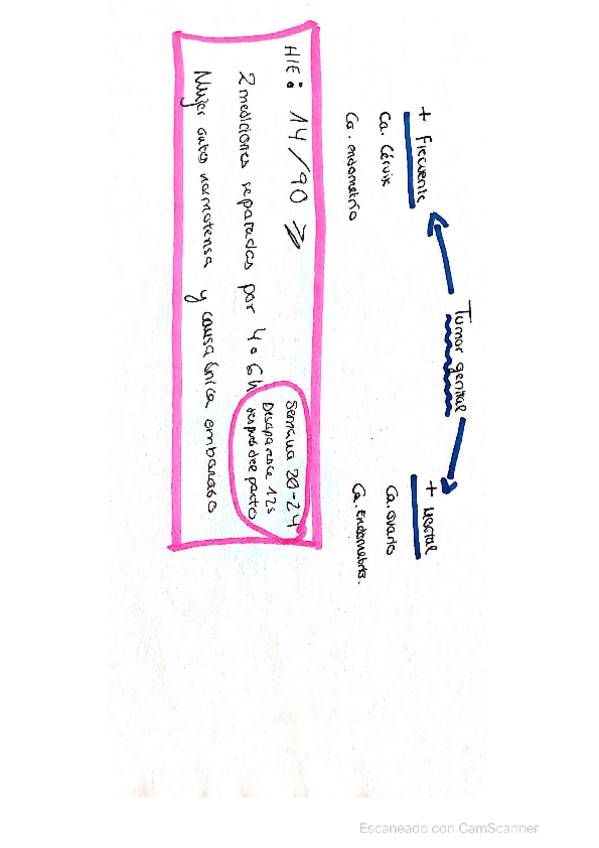 Tumor genital
+ Frecuente
Ca. Cérvix
Ca. endometrio
+ Mortal
Ca. ovario
Ca. Endometrio.
HIE: 14/90 ≥
2 mediciones separadas por 4 o 6h
Mujer antes normotensa y causa única embarazo
Semana 20-24
Desaparece 12s
después del parto
Escaneado con CamScanner